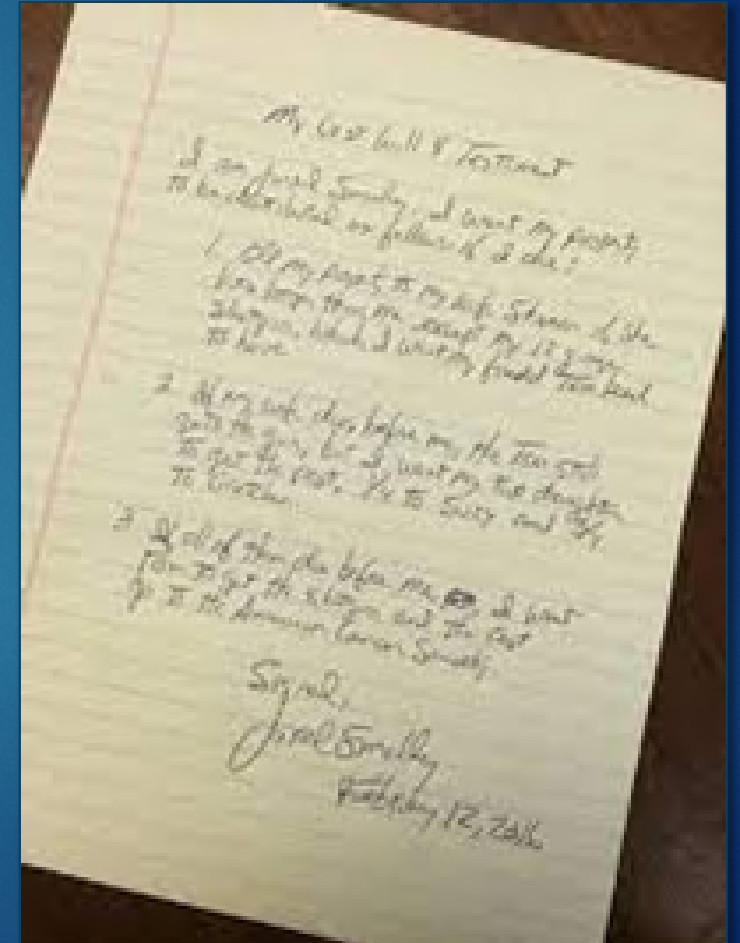 My Last Will & Testament
I am Smiley. I want my property
to be distributed as follows if I die:
1. All my property to my wife Sharon if she
has longer than me except my 12 gauge
shotgun, which I want my friend Tom
to have
2. If my wife dies before me, the Tom still
gets the gun, but I want my two daughters
to get the rest. 1/4 to Suzy and 3/4
to
3. If all of them die before me, I want
Tom to get the shotgun and the rest
go to the American Cancer Society.
Signed,
Smiley
February 12,